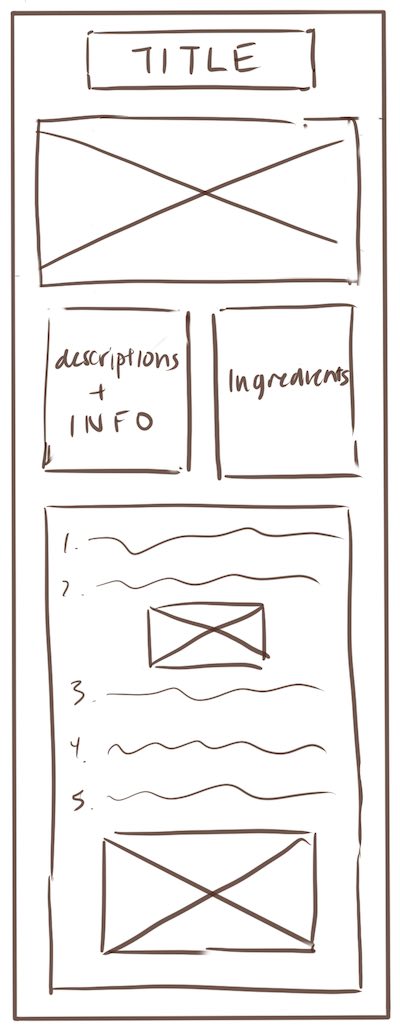 TITLE
descriptions
+
INFO
Ingredients
1.
2.
3.
4.
5.